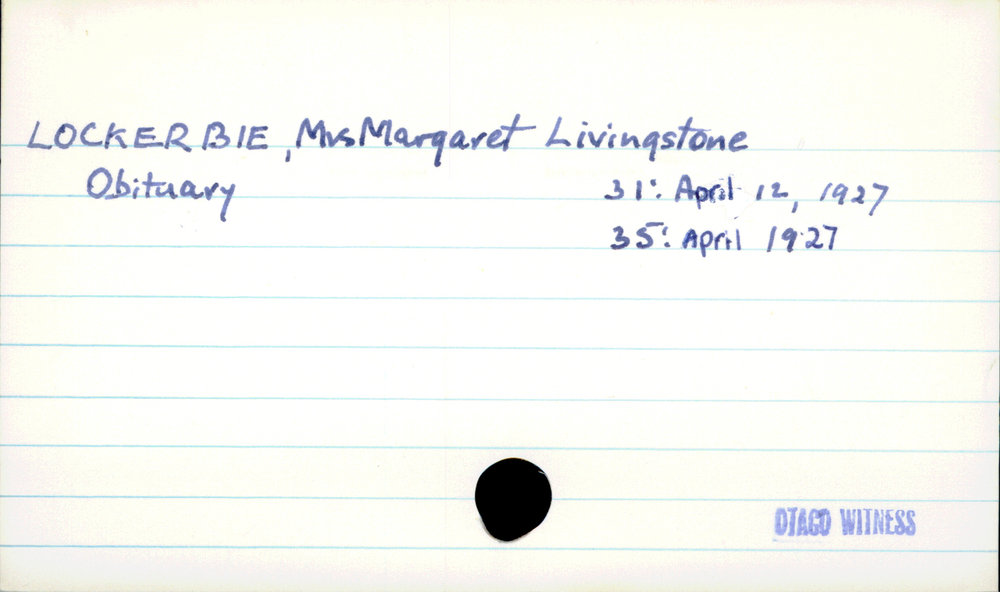 LOCKERBIE, Mrs Margaret Livingstone
Obituary 31: April 12, 1927
35: April 1927
OTAGO WITNESS